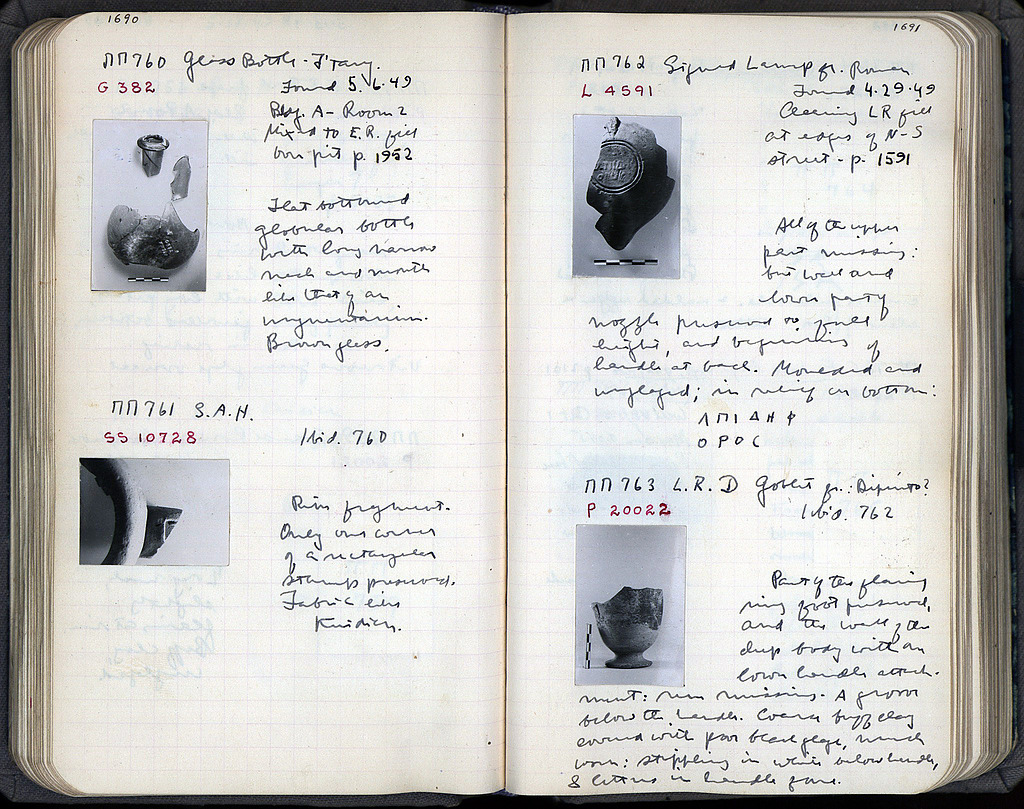 1690
ΠΠ760 Glass Bottle - Frag.
G 382
Found 5.6.49
Bldg. A - Room 2
Mixed to E.R. fill
p. 1952
Flat bottomed
globular bottle
with long narrow
neck and mouth
like that of an
unguentarium.
Brown glass.
ΠΠ761 S.A.H.
SS 10728
Ibid. 760
Rim fragment.
Only one corner
of a rectangular
stamp preserved.
Fabric like
Knidian.
1691
ΠΠ762 Signed Lamp fr. Roman
L 4591
Found 4.29.49
Cleaning LR fill
at edges of N-S
street - p. 1591
All of the upper
part missing:
but wall and
lower part of
nozzle preserved to full
height, and beginning of
handle at back. Moulded and
unglazed; in relief on bottom:
ΛΠΙΔΗΦ
ΟΡΟC
ΠΠ763 L.R. D Goblet fr. : Dipinto?
P 20022
Ibid. 762
Part of the flaring
ring foot preserved,
and the wall of the
deep body with
lower handle attach-
ment: rim missing. A groove
below the handle. Coarse buff clay
covered with poor black glaze, much
worn: stippling in white below handle,
& letters in handle zone.